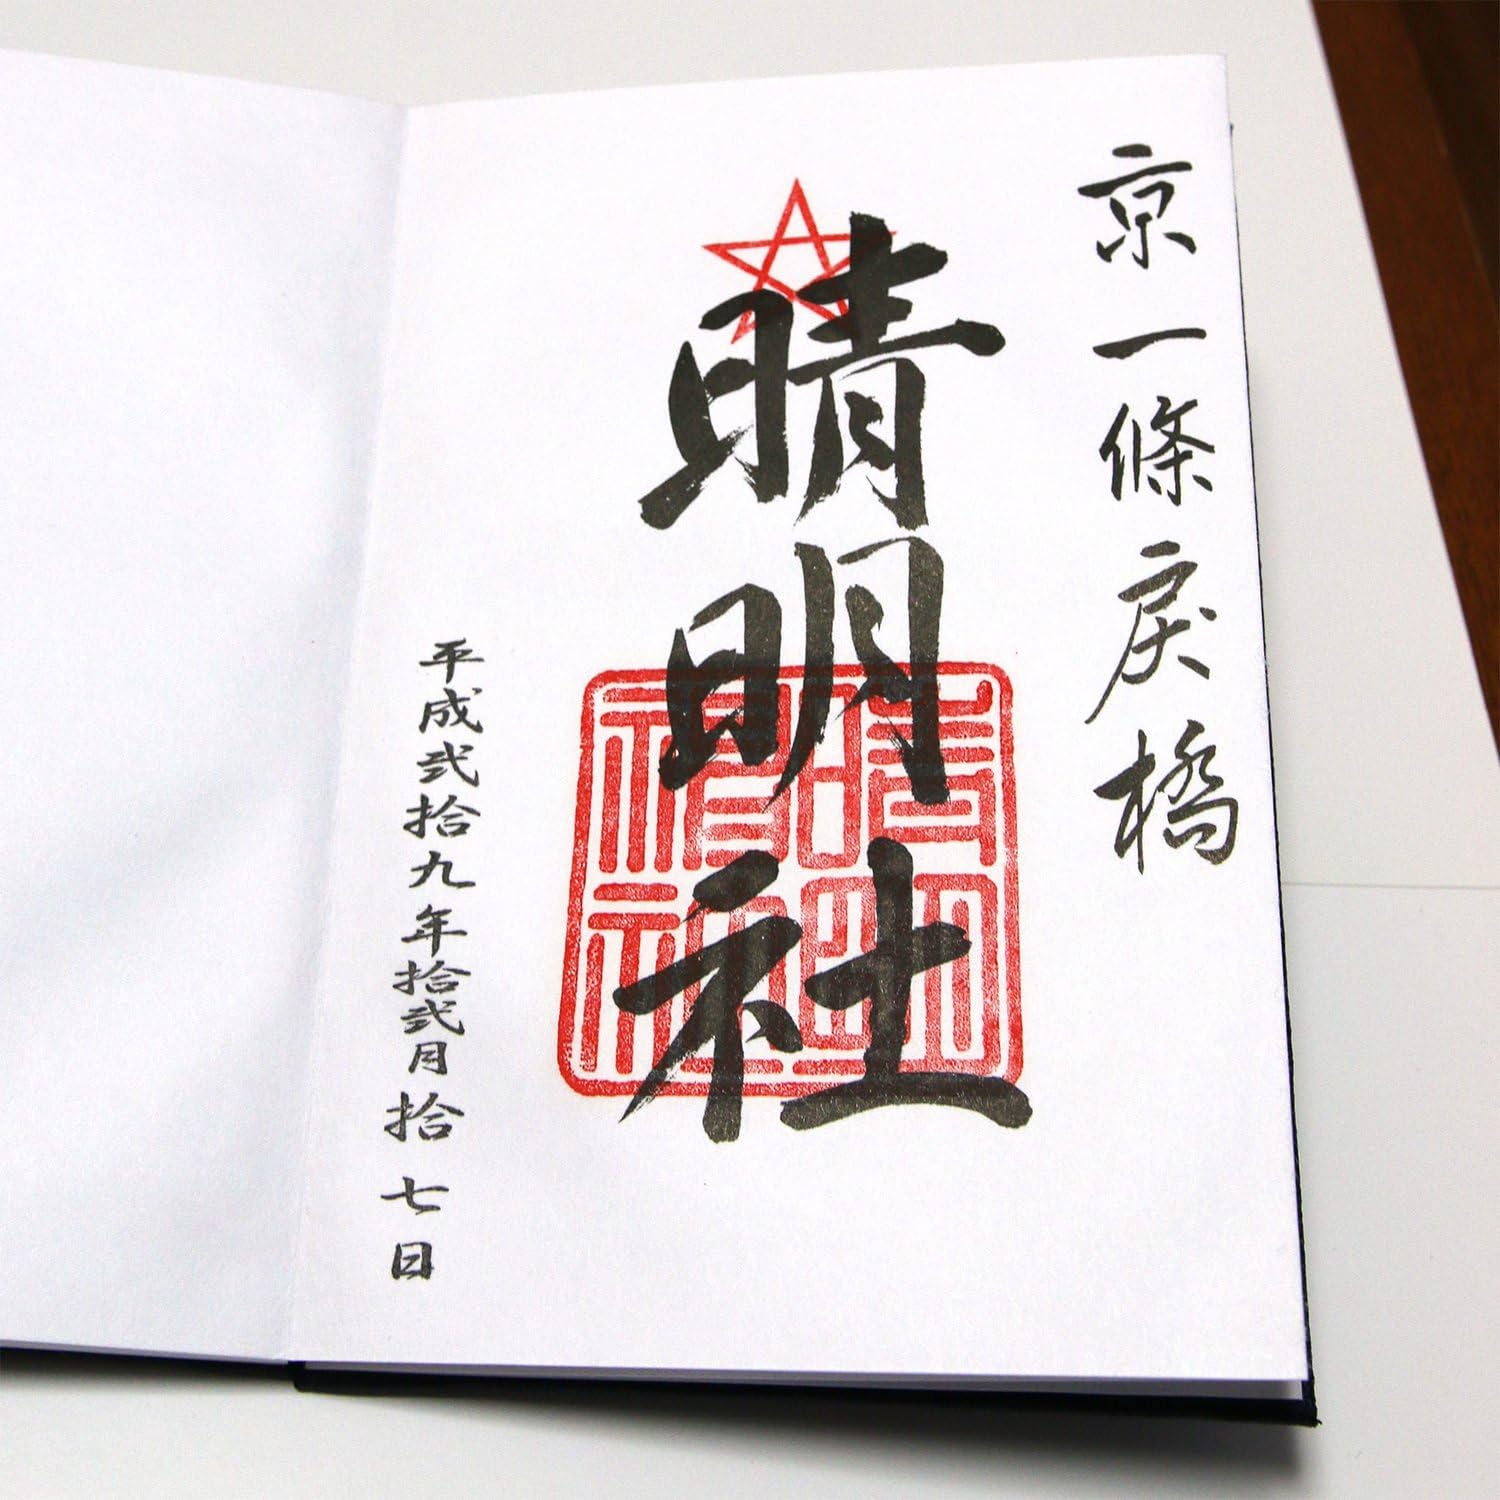 京一條戻橋
晴明社
平成弐拾九年拾弐月拾七日